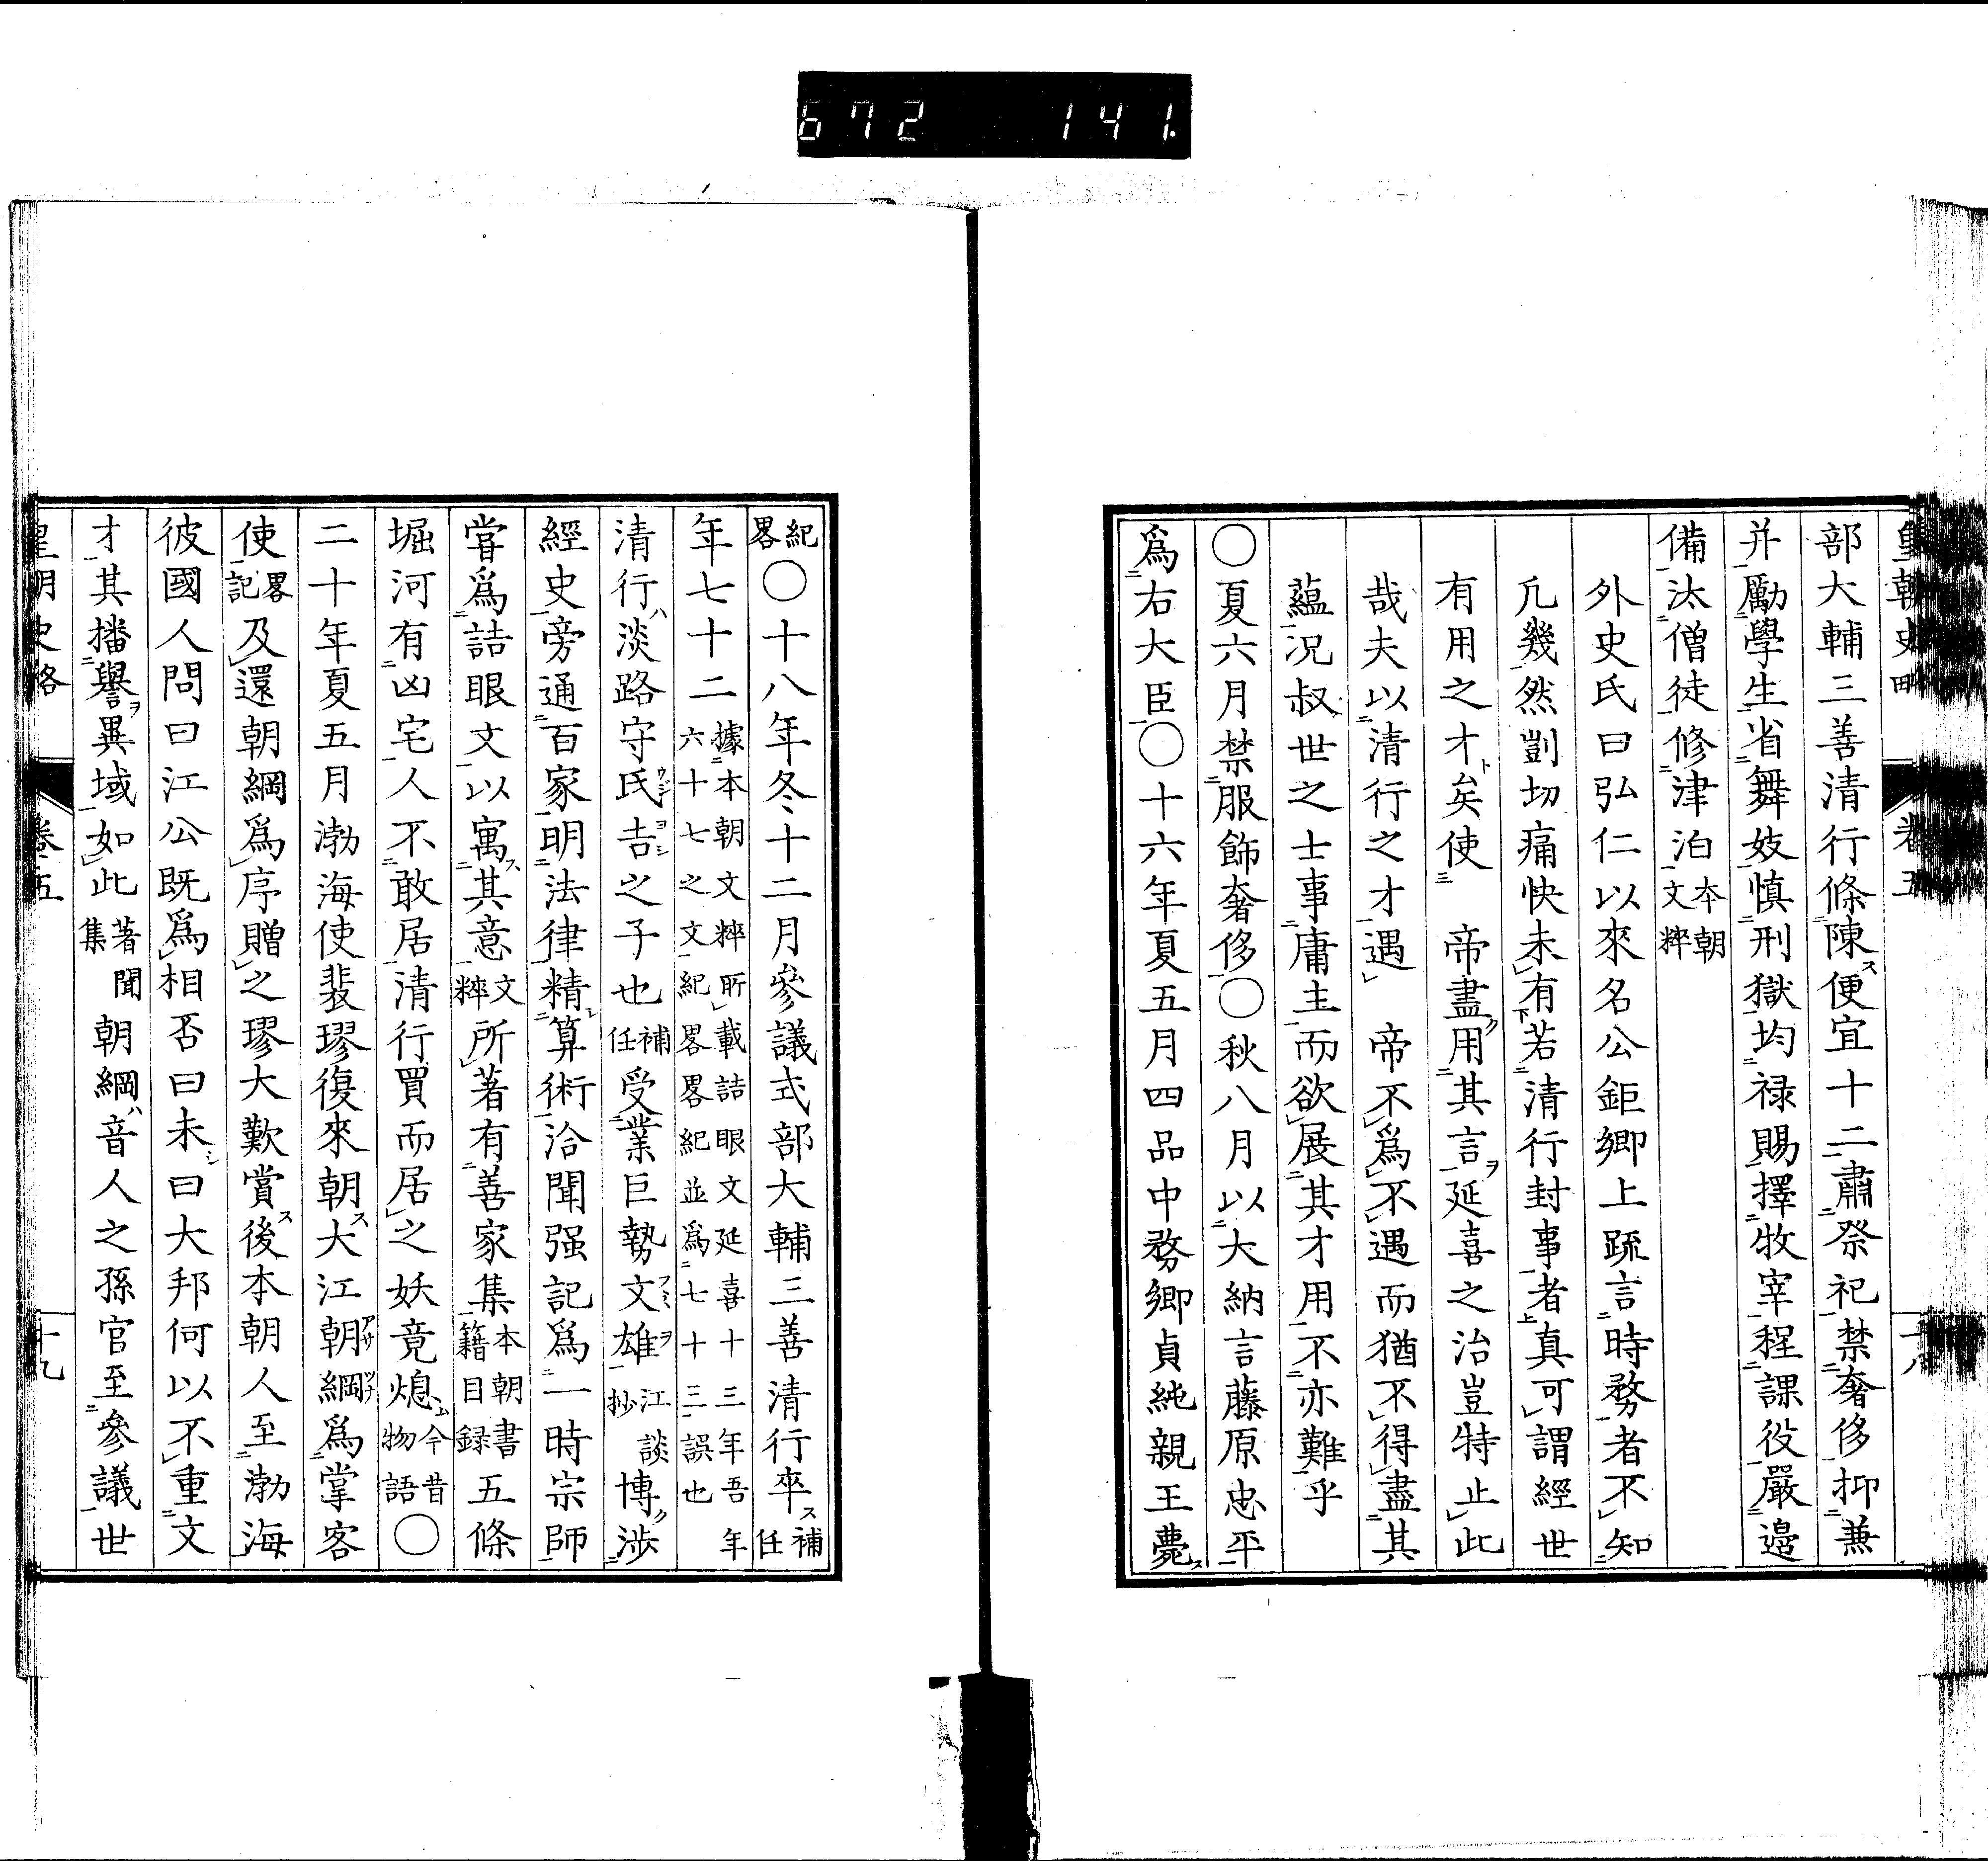 672 141
皇朝史畧 卷五 十八
部大輔三善清行條陳ス便宜十二肅祭祀禁奢侈抑兼
并勵學生省舞妓慎刑獄均祿賜擇牧宰程課役嚴邉
備汰僧徒修津泊本朝文粹
外史氏曰弘仁以來名公鉅卿上疏言時務者不知
凢幾然剴切痛快未有若清行封事者真可謂經世
有用之才矣使 帝盡用其言延喜之治豈特止此
哉夫以清行之才遇 帝不爲不遇而猶不得盡其
蘊况叔世之士事庸主而欲展其才用不亦難乎
〇夏六月禁服飾奢侈〇秋八月以大納言藤原忠平
爲右大臣〇十六年夏五月四品中務卿貞純親王薨ス
紀畧〇十八年冬十二月參議式部大輔三善清行卒ス補任
年七十二據本朝文粹所載詰眼文延喜十三年吾年六十七之文紀畧畧紀並爲七十三誤也
清行ハ淡路守氏吉ウジヨシ之子也補任受業巨勢文雄フミヲ江談抄博ク渉
經史旁通百家明法律精算術洽聞强記爲一時宗師
甞爲詰眼文以寓ス其意文粹所著有善家集本朝書籍目録五條
堀河有凶宅人不敢居清行買而居之妖竟熄ム今昔物語〇
二十年夏五月渤海使裴璆復來朝ス大江朝綱アサツナ爲掌客
使畧記及還朝綱爲序贈之璆大歎賞ス後本朝人至渤海
彼國人問曰江公既爲相否曰未シ曰大邦何以不重文
才其播譽ヲ異域如此著聞集朝綱ハ音人之孫官至參議世
皇朝史略 卷五 十九